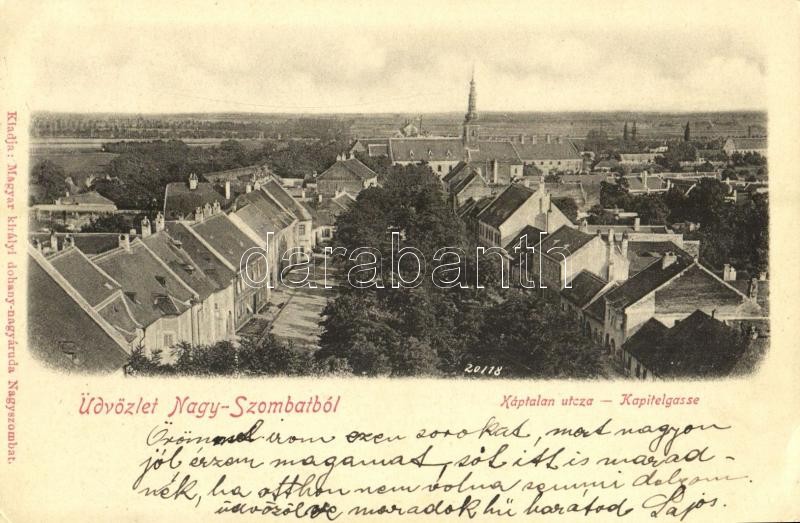 Kiadja: Magyar királyi dohany-nagyáruda Nagyszombat.
darabanth
20118
Üdvözlet Nagy-Szombatból
Káptalan utcza — Kapitelgasse
Örömmel irom ezen sorokat, mert nagyon
jól érzem magamat, sőt itt is marad-
nék, ha otthon nem volna semmi dolgom.
üdvözölve maradok hű barátod Lajos.